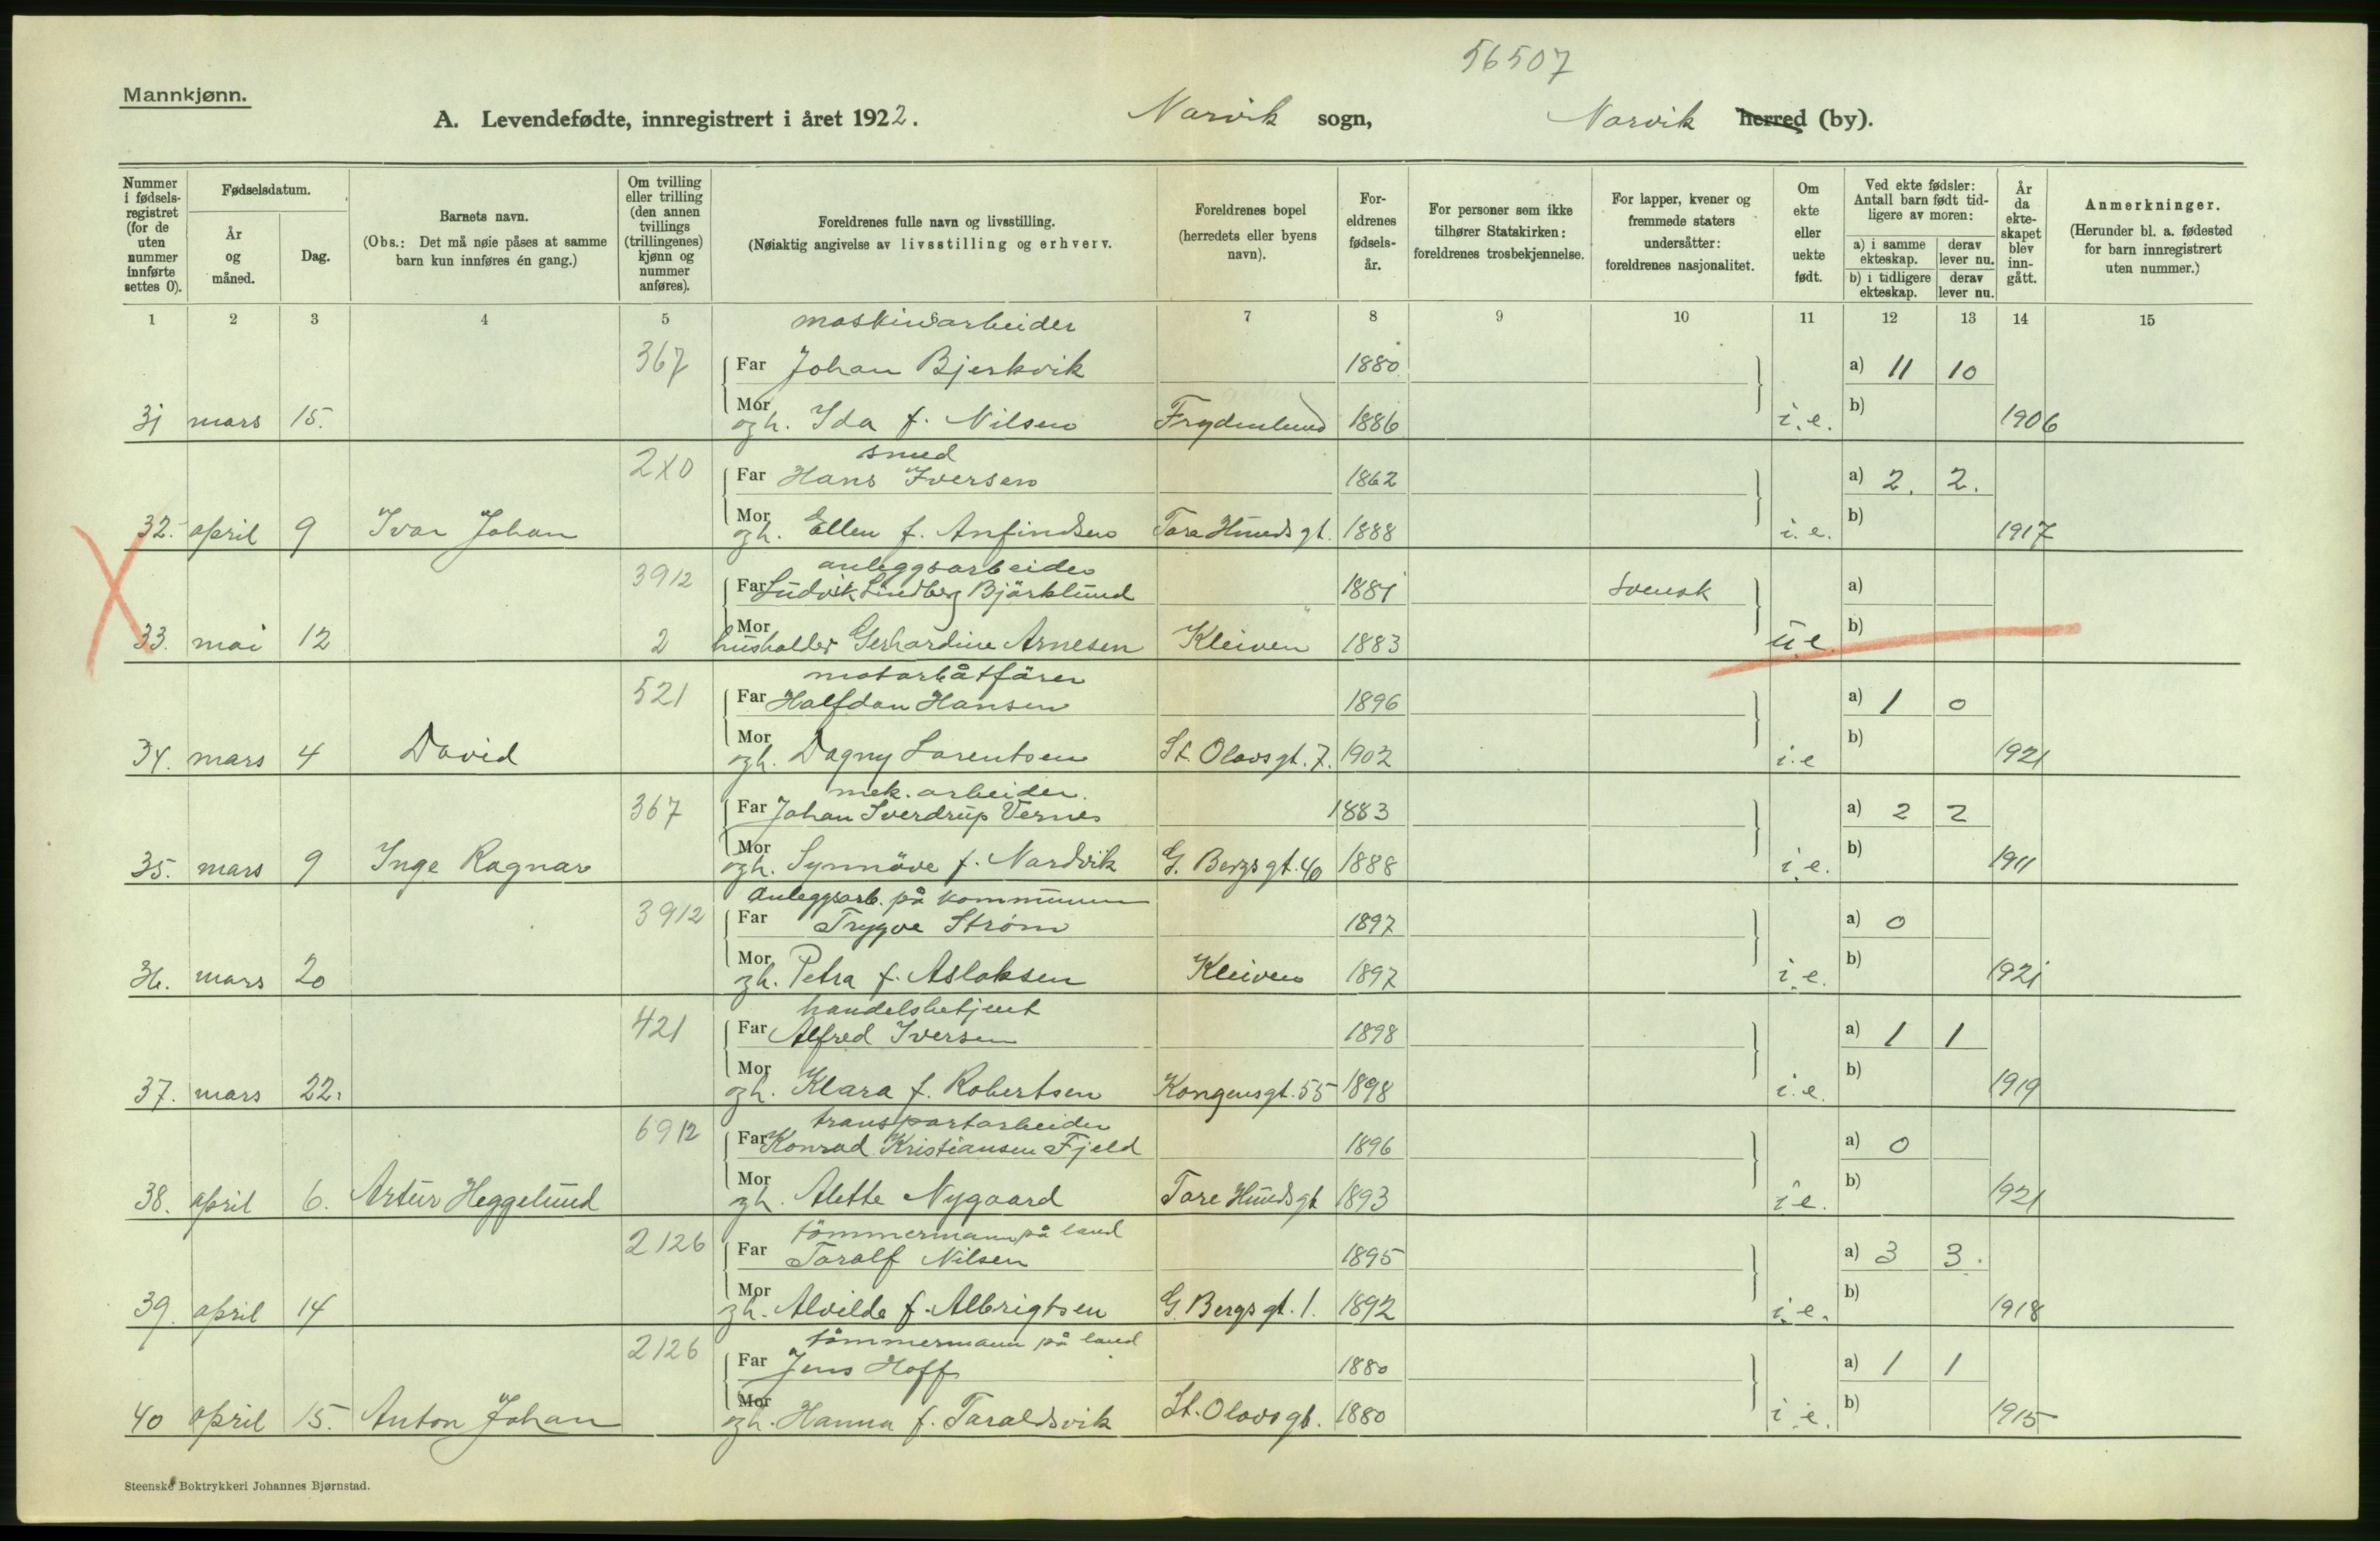 56507
Mannkjønn.
A. Levendefødte, innregistrert i året 1922. Narvik sogn, Narvik herred (by).
Nummer i fødsels-registret (for de uten nummer innførte settes 0).
Fødselsdatum.
År og måned.
Dag.
Barnets navn.
(Obs.: Det må nøie påses at samme barn kun innføres én gang.)
Om tvilling eller trilling (den annen tvillings (trillingenes) kjønn og nummer anføres).
Foreldrenes fulle navn og livsstilling.
(Nøiaktig angivelse av livsstilling og erhverv.
Foreldrenes bopel (herredets eller byens navn).
For-eldrenes fødsels-år.
For personer som ikke tilhører Statskirken: foreldrenes trosbekjennelse.
For lapper, kvener og fremmede staters undersåtter: foreldrenes nasjonalitet.
Om ekte eller uekte født.
Ved ekte fødsler: Antall barn født tid-ligere av moren:
a) i samme ekteskap.
derav lever nu.
b) i tidligere ekteskap.
derav lever nu.
År da ekte-skapet blev inn-gått.
Anmerkninger.
(Herunder bl. a. fødested for barn innregistrert uten nummer.)
1 2 3 4 5 7 8 9 10 11 12 13 14 15
maskinarbeider
367 Far Johan Bjerkvik 1880 a) 11 10
31 mars 15. Mor og h. Ida f. Nilsen Frydenlund 1886 i.e. b) 1906
smed
2X0 Far Hans Iversen 1862 a) 2. 2.
32. april 9 Ivar Johan Mor og h. Ellen f. Anfindsen Tore Hunds gt. 1888 i.e. b) 1917
anleggsarbeider
3912 Far Ludvik Lindberg Bjørklund 1881 svensk a)
33. mai 12 2 Mor husholder Gerhardine Arnesen Kleiven 1883 u.e. b)
motorbåtfører
521 Far Halfdan Hansen 1896 a) 1 0
34. mars 4 David Mor og h. Dagny Lorentsen St. Olavs gt. 7. 1902 i.e b) 1921
mek. arbeider.
367 Far Johan Sverdrup Vernes 1883 a) 2 2
35. mars 9 Inge Ragnar Mor og h. Synnøve f. Nardvik G. Bergs gt. 40 1888 i.e. b) 1911
Anleggsarb. på kommunen
3912 Far Trygve Strøm 1897 a) 0
36. mars 20 Mor og h. Petra f. Aslaksen Kleiven 1897 i.e. b) 1921
handelsbetjent
421 Far Alfred Iversen 1898 a) 1 1
37. mars 22. Mor og h. Klara f. Robertsen Kongensgt. 55 1898 i.e. b) 1919
transportarbeider
6912 Far Konrad Kristiansen Fjeld 1896 a) 0
38. april 6. Artur Heggelund Mor og h. Alette Nygaard Tore Hunds gt 1893 i e. b) 1921
tømmermann på land
2126 Far Toralf Nilsen 1895 a) 3 3.
39. april 14 Mor og h. Alvilde f. Albrigtsen G. Bergs gt. 1. 1892 i.e. b) 1918
tømmermann på land
2126 Far Jens Hoff 1880 a) 1 1
40 april 15. Anton Johan Mor og h. Hanna f. Taraldsvik St. Olavs gt. 1880 i e. b) 1915
Steenske Boktrykkeri Johannes Bjørnstad.